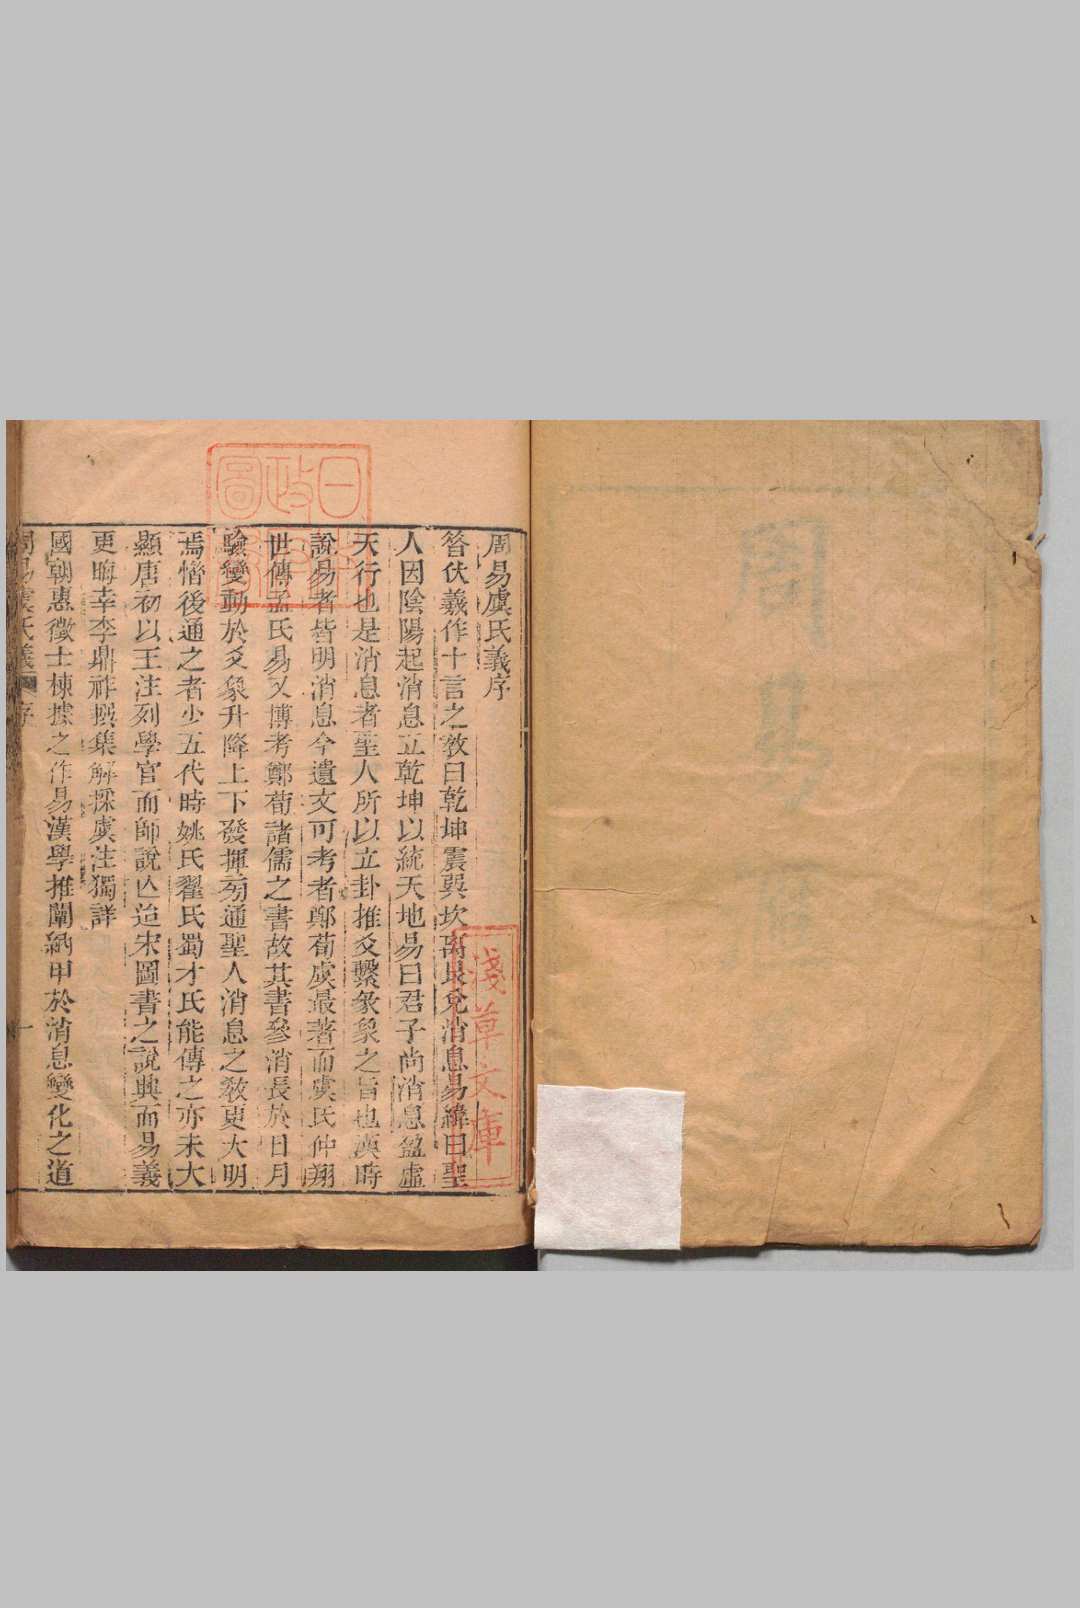 周易虞氏義序
昝伏羲作十言之敎曰乾坤震巽坎离艮兌消息易緯曰聖
人因陰陽起消息立乾坤以統天地易曰君子尚消息盈虛
天行也是消息者聖人所以立卦推爻繫彖象之旨也漢時
說易者皆明消息今遺文可考者鄭荀虞最著而虞氏仲翔
世傳孟氏易又博考鄭荀諸儒之書故其書參消長於日月
驗變動於爻象升降上下發揮旁通聖人消息之敎更大明
焉惜後通之者少五代時姚氏翟氏蜀才氏能傳之亦未大
顯唐初以王注列學官而師說亾迨宋圖書之說興而易義
更晦幸李鼎祚撰集解採虞注獨詳
國朝惠徵士棟據之作易漢學推闡納甲於消息變化之道
周易虞氏義 序 一
淺草文庫
日本政府圖書